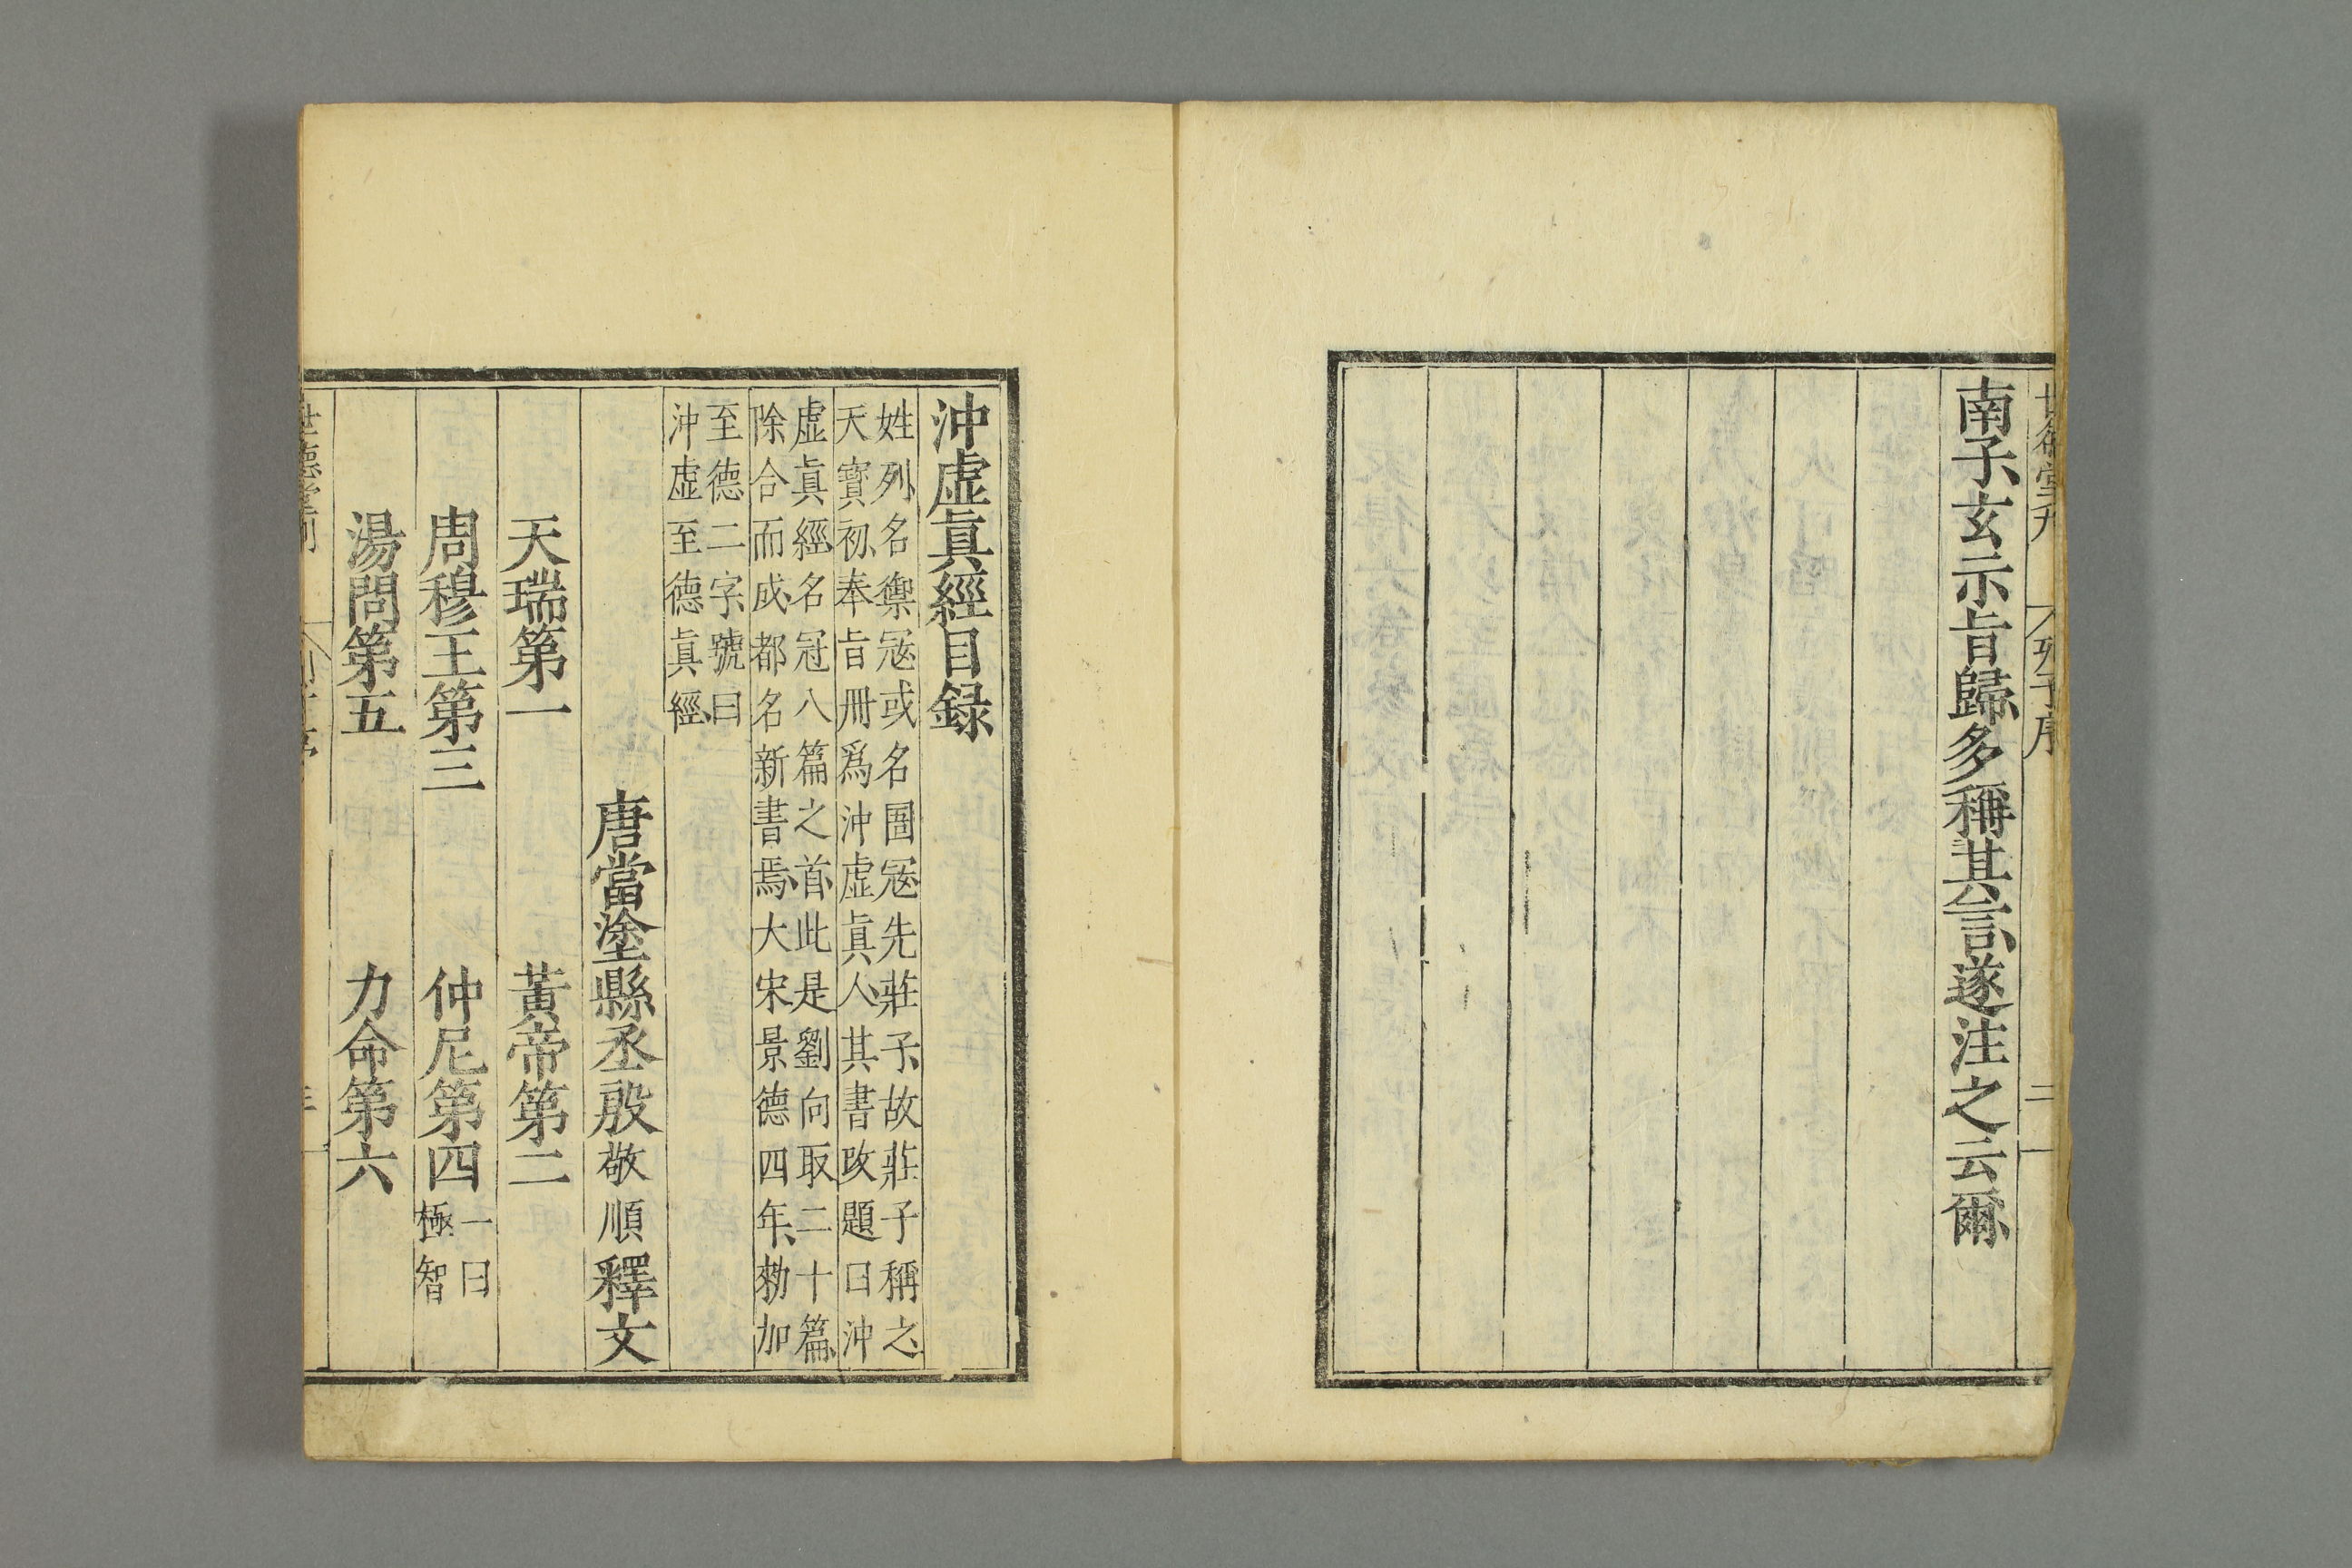 世德堂刊 列子序 二
南子玄示旨歸多稱其言遂注之云爾
沖虛眞經目録
姓列名禦冦或名圄冦先莊子故莊子稱之
天寶初奉旨冊爲沖虛眞人其書攺題曰沖
虛眞經名冠八篇之首此是劉向取二十篇
除合而成都名新書焉大宋景德四年勑加
至德二字號曰
沖虛至德眞經
唐當塗縣丞殷敬順釋文
天瑞第一 黃帝第二
周穆王第三 仲尼第四 一曰極智
湯問第五 力命第六
世德堂刊